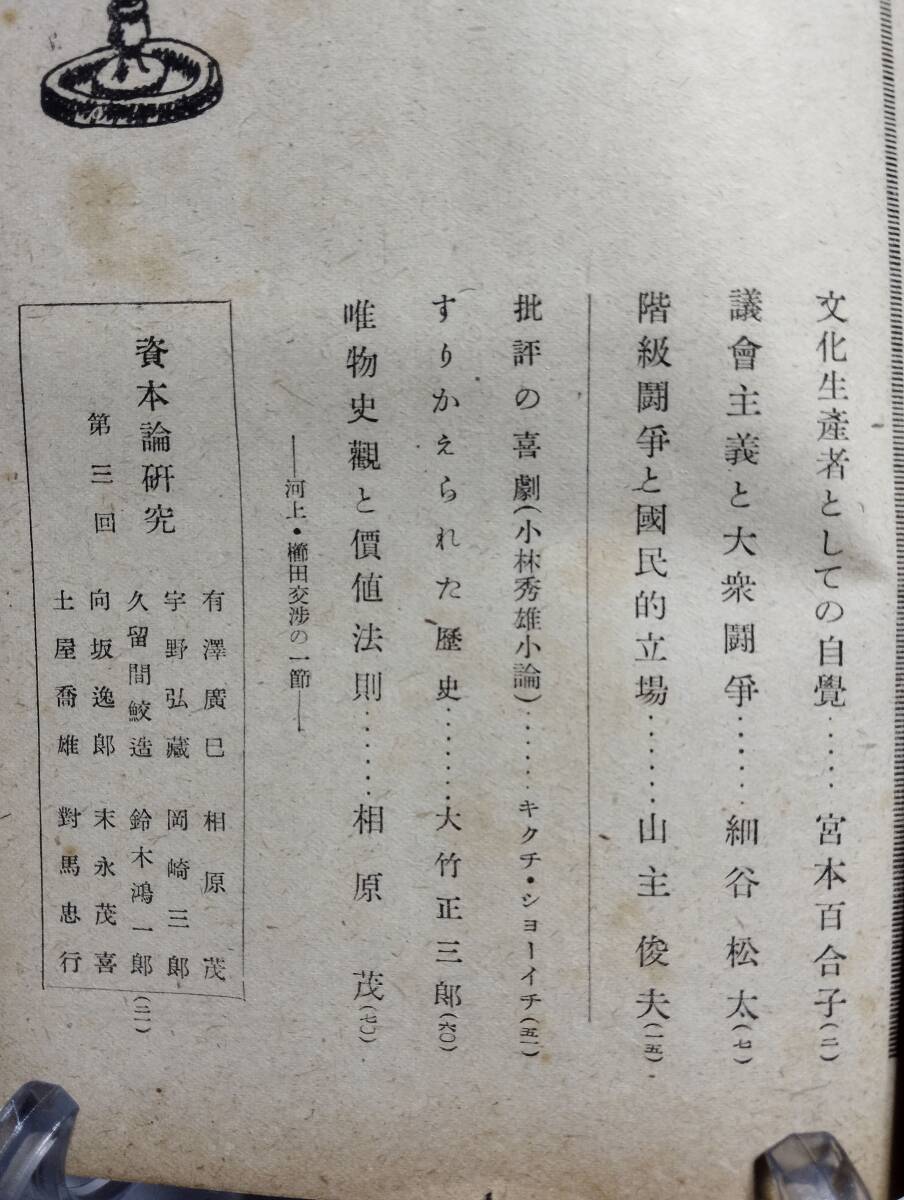 文化生產者としての自覺‥‥‥宮本百合子(二)
議會主義と大衆鬪爭‥‥‥細谷松太(七)
階級鬪爭と國民的立場‥‥‥山主俊夫(一五)
批評の喜劇(小林秀雄小論)‥‥‥キクチ・ショーイチ(五一)
すりかえられた歷史‥‥‥大竹正三郞(六〇)
唯物史觀と價値法則‥‥‥相原茂(七〇)
――河上・櫛田交涉の一節――
資本論硏究
第三回
有澤廣巳 相原茂
宇野弘藏 岡崎三郞
久留間鮫造 鈴木鴻一郞(二一)
向坂逸郞 末永茂喜
土屋喬雄 對馬忠行